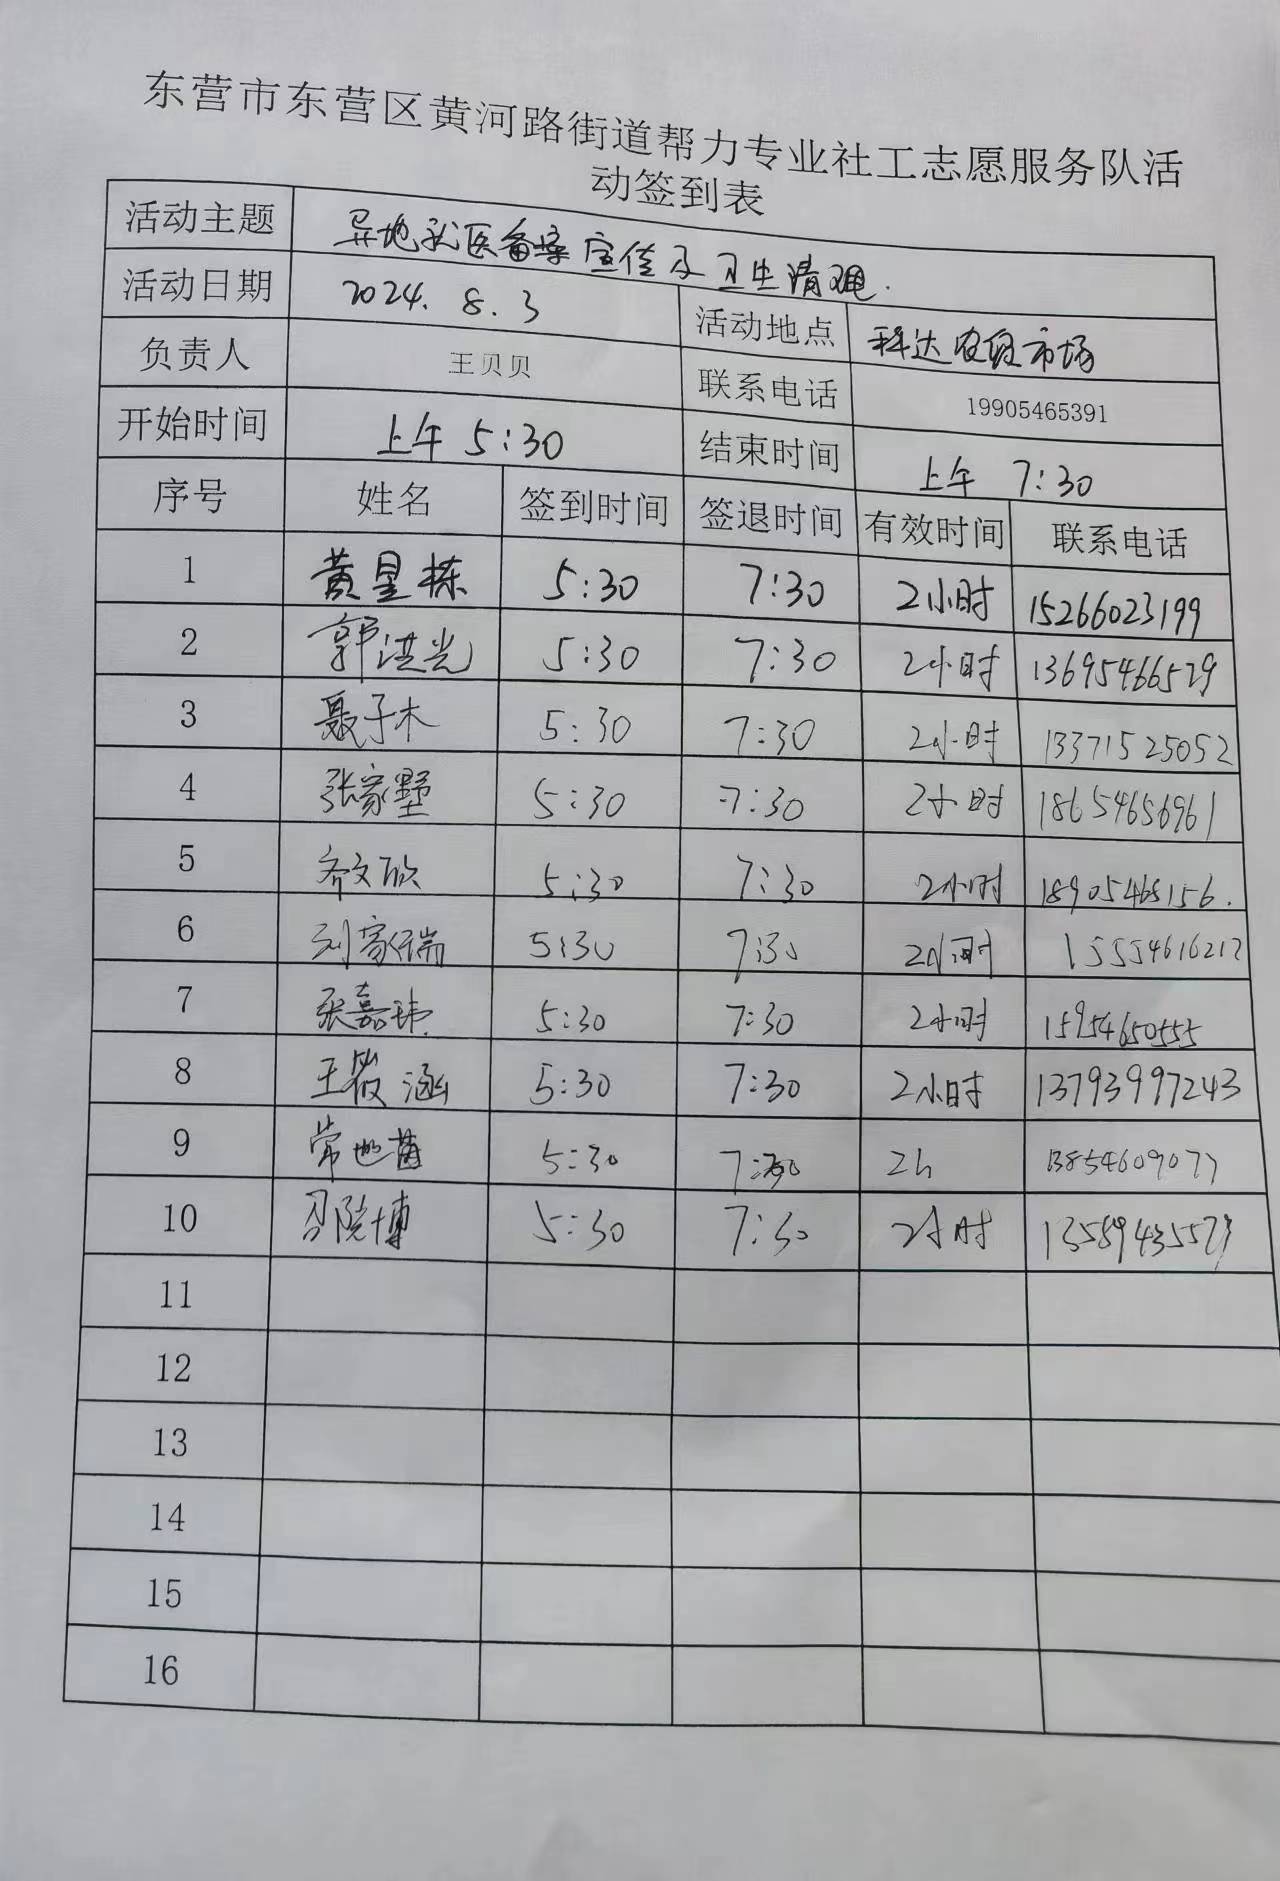 东营市东营区黄河路街道帮力专业社工志愿服务队活
动签到表
活动主题 异地就医备案宣传及卫生清理.
活动日期 2024.8.3 活动地点 科达农贸市场
负责人 王贝贝 联系电话 19905465391
开始时间 上午 5:30 结束时间 上午 7:30
序号 姓名 签到时间 签退时间 有效时间 联系电话
1 黄星栋 5:30 7:30 2小时 15266023199
2 郭洪光 5:30 7:30 2小时 13695466529
3 聂子木 5:30 7:30 2小时 13371525052
4 张家墅 5:30 7:30 2小时 18654656961
5 齐文欣 5:30 7:30 2小时 18905468156.
6 刘家瑞 5:30 7:30 2小时 15554616212
7 张嘉玮 5:30 7:30 2小时 15954650555
8 王筱涵 5:30 7:30 2小时 13793997243
9 5:30 7:30 2h 13854609077
10 5:30 7:30 2小时
11
12
13
14
15
16